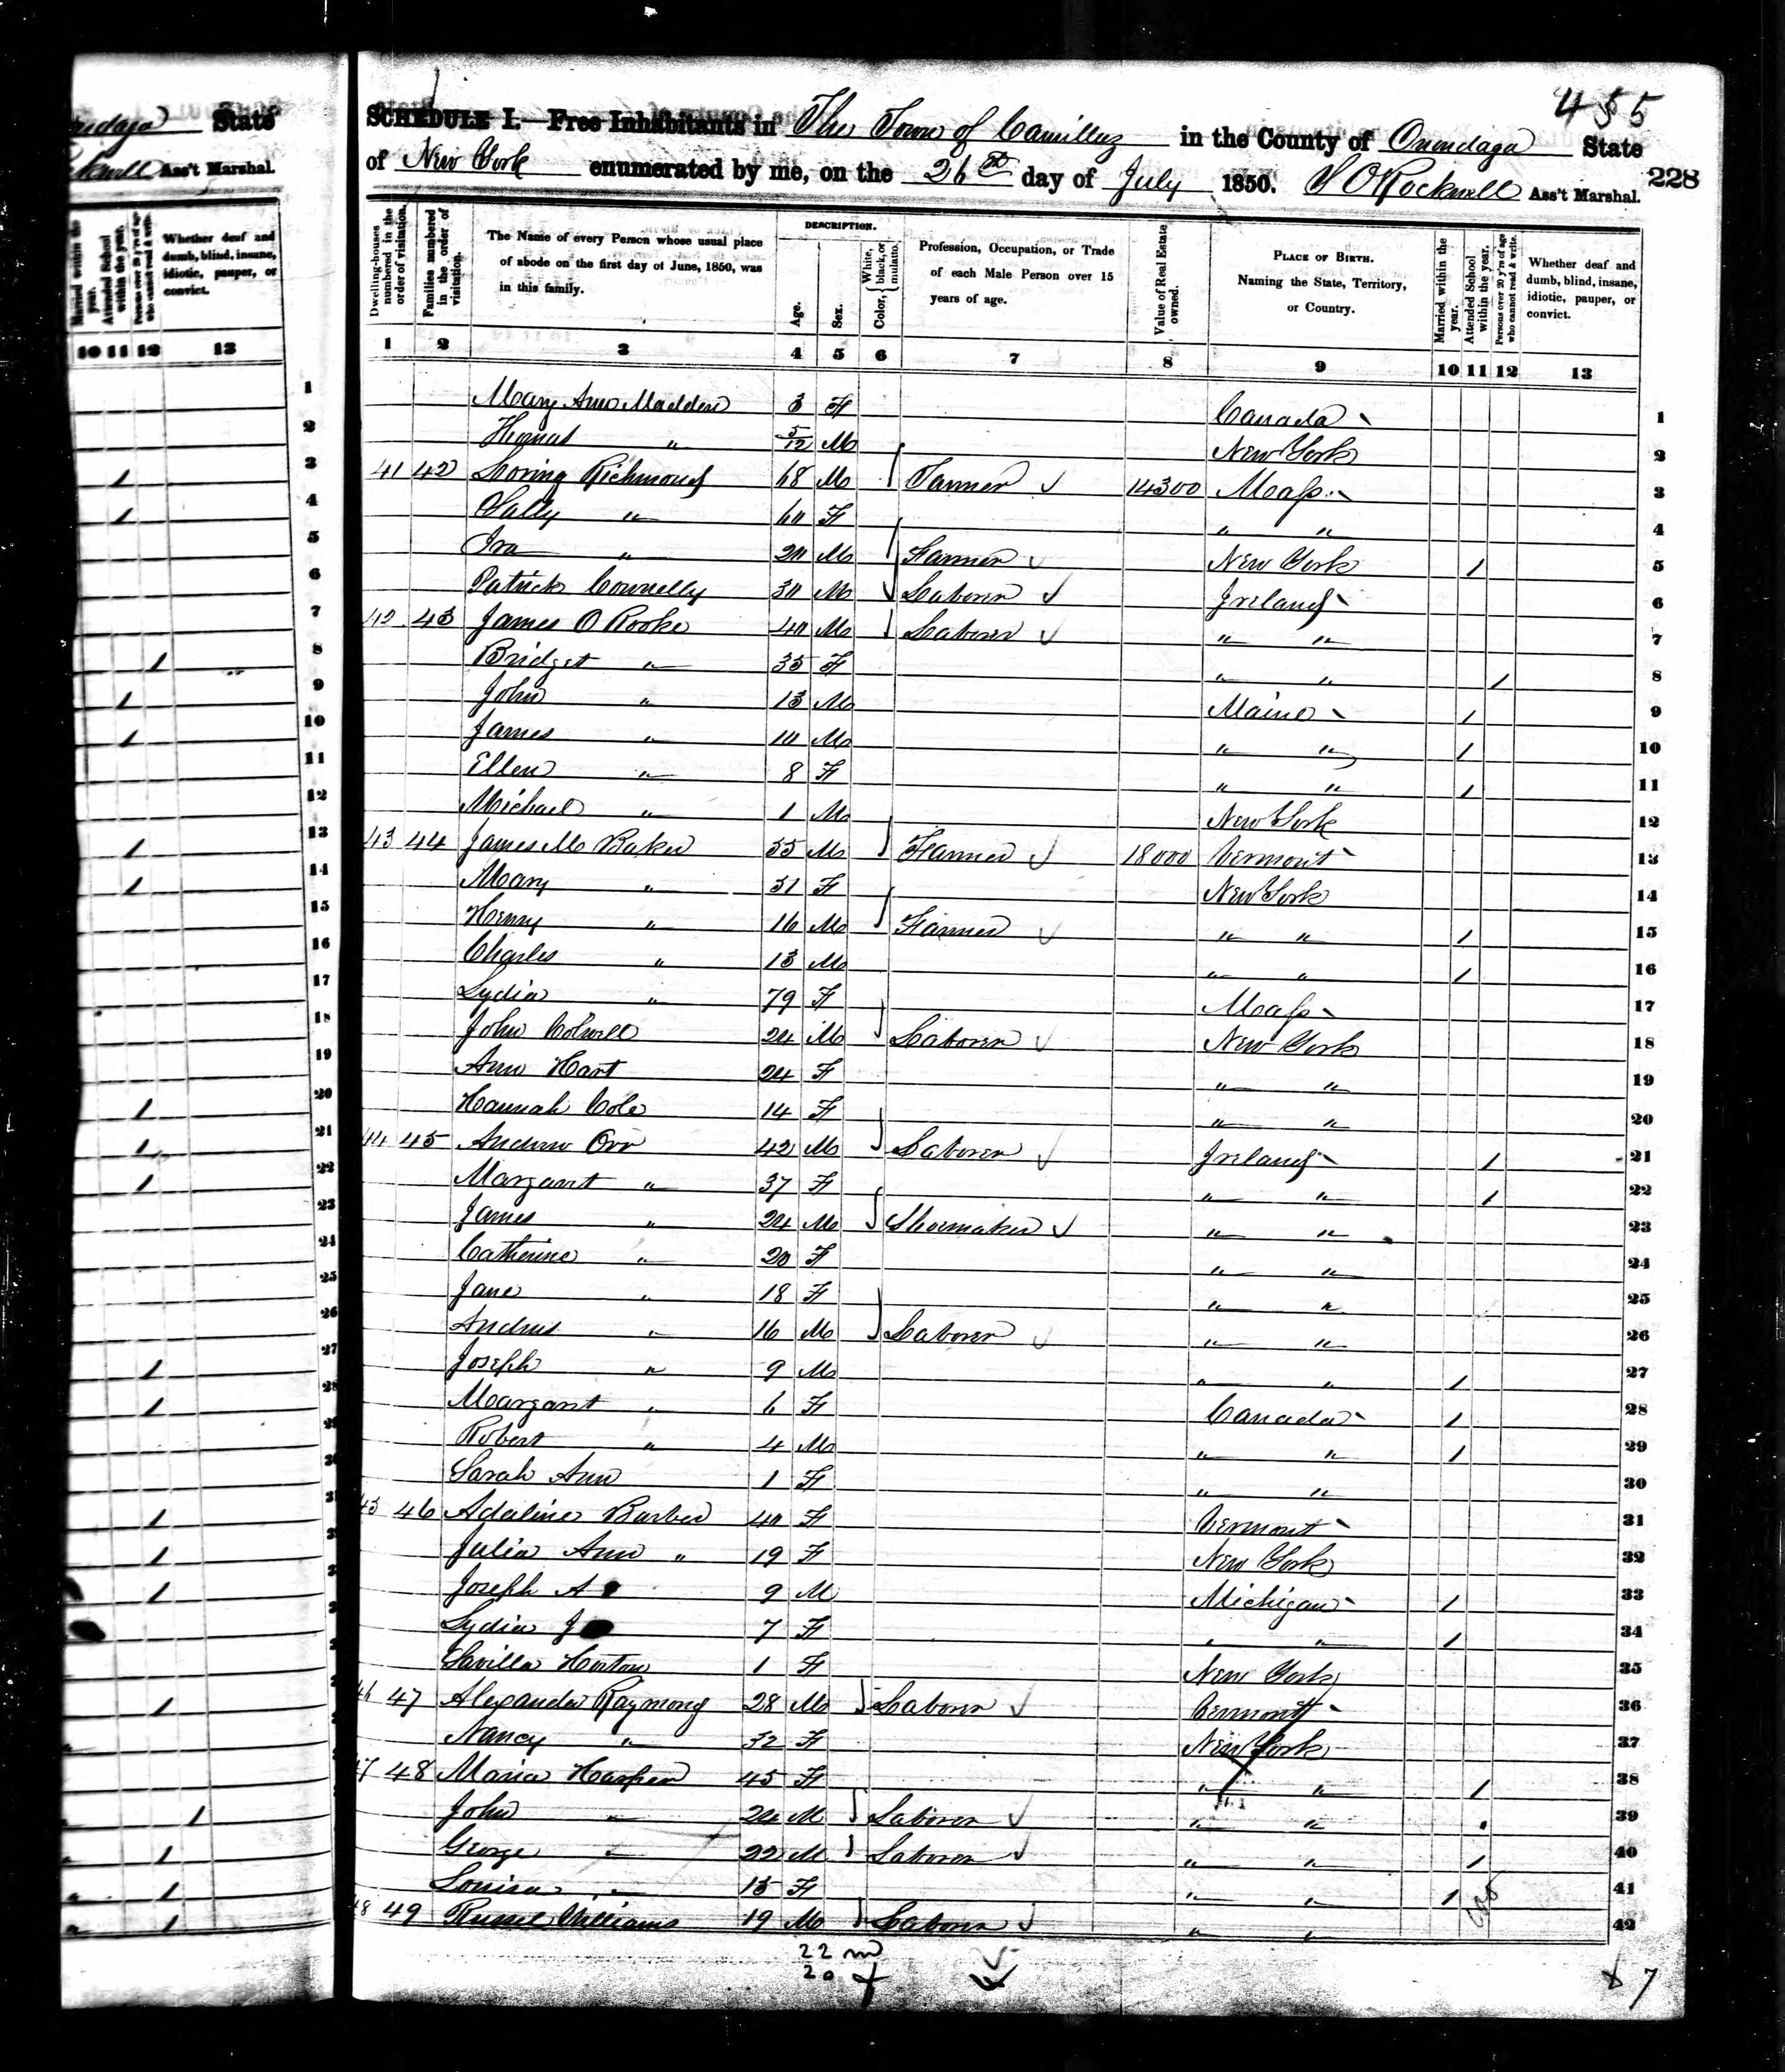 ondaga State
Ass't Marshal.
Married within the year.
Attended School within the year.
Persons over 20 y'rs of age who cannot read & write.
Whether deaf and dumb, blind, insane, idiotic, pauper, or convict.
10 11 12 13
455
SCHEDULE I.—Free Inhabitants in The Town of Camillus in the County of Onondaga State
of New York enumerated by me, on the 26th day of July 1850. S O Rockwell Ass't Marshal. 228
Dwelling-houses numbered in the order of visitation.
Families numbered in the order of visitation.
The Name of every Person whose usual place of abode on the first day of June, 1850, was in this family.
DESCRIPTION.
Age.
Sex.
Color, { White, black, or mulatto.
Profession, Occupation, or Trade of each Male Person over 15 years of age.
Value of Real Estate owned.
PLACE OF BIRTH. Naming the State, Territory, or Country.
Married within the year.
Attended School within the year.
Persons over 20 y'rs of age who cannot read & write.
Whether deaf and dumb, blind, insane, idiotic, pauper, or convict.
1 2 3 4 5 6 7 8 9 10 11 12 13
1 Mary Ann Madden 3 F Canada 1
2 Thomas " 5/12 M New York 2
3 41 42 Loring Richmond 68 M Farmer 14300 Mass. 3
4 Sally " 60 F " " 4
5 Ira " 20 M Farmer New York 1 5
6 Patrick Connelly 30 M Laborer Ireland 6
7 42 43 James O Rooke 40 M Laborer " " 7
8 Bridget " 35 F " " 1 8
9 John " 13 M Maine 1 9
10 James " 10 M " " 1 10
11 Ellen " 8 F " " 1 11
12 Michael " 1 M New York 12
13 43 44 James M Baker 55 M Farmer 18000 Vermont 13
14 Mary " 51 F New York 14
15 Henry " 16 M Farmer " " 1 15
16 Charles " 13 M " " 1 16
17 Lydia " 79 F Mass 17
18 John Colwell 24 M Laborer New York 18
19 Ann Hart 24 F " " 19
20 Hannah Cole 14 F " " 20
21 44 45 Andrew Orr 42 M Laborer Ireland 1 21
22 Margaret " 37 F " " 1 22
23 James " 24 M Shoemaker " " 23
24 Catherine " 20 F " " 24
25 Jane " 18 F " " 25
26 Andrew " 16 M Laborer " " 26
27 Joseph " 9 M " " 1 27
28 Margaret " 6 F Canada 1 28
29 Robert " 4 M " " 1 29
30 Sarah Ann 1 F " " 30
45 46 Adaline Barber 40 F Vermont 31
Julia Ann " 19 F New York 32
Joseph A 9 M Michigan 1 33
Lydia J 7 F " " 1 34
Savilla Horton 1 F New York 35
46 47 Alexander Raymond 28 M Laborer Vermont 36
Nancy " 32 F New York 37
47 48 Maria Harper 45 F " " 1 38
John " 24 M Laborer " " 39
George " 22 M Laborer " " 1 40
Louisa " 15 F " " 1 41
48 49 Russel Williams 19 M Laborer " " 42
22 m
20 f
7